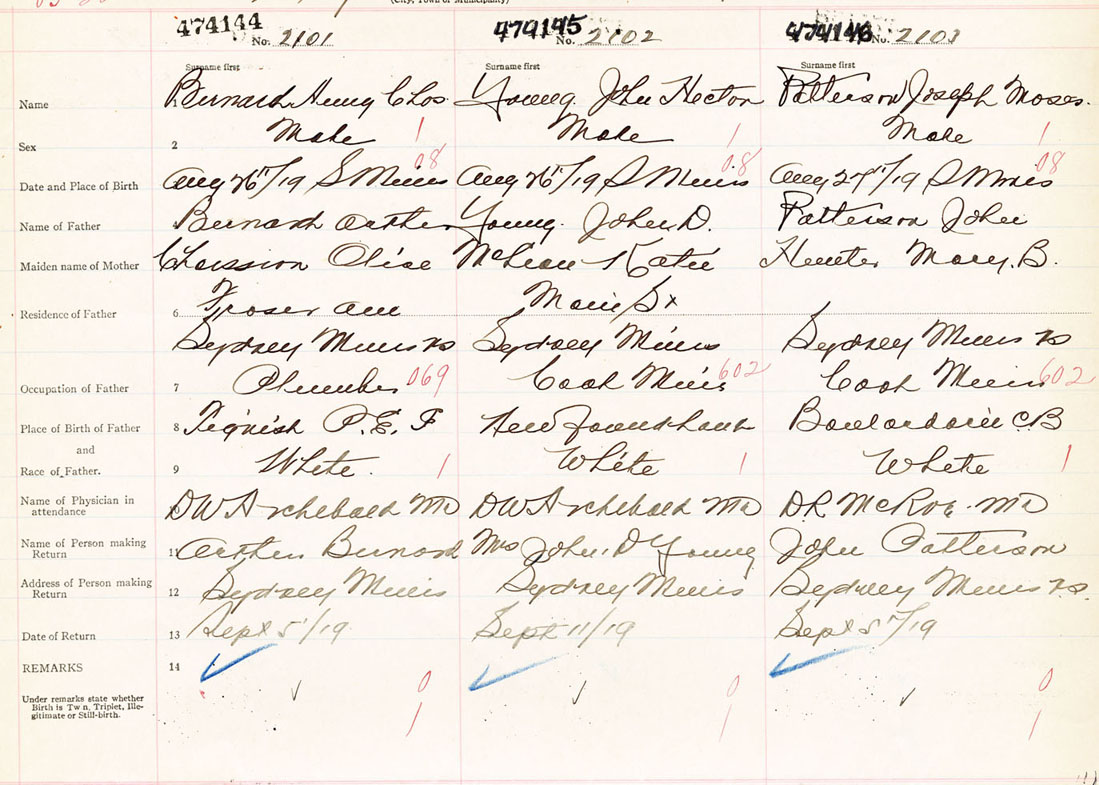 (City, Town or Municipality)
474144 474145 474146
No. 2101 No. 2102 No. 2103
Surname first Surname first Surname first
Name Bernard Henry Chas. Young. John Hector Patterson Joseph Moses.
Sex 2 Male 1 Male 1 Male 1
08 08 08
Date and Place of Birth Aug 26/19 S Mines Aug 26/19 S Mines Aug 27/19 S Mines
Name of Father Bernard Arthur Young. John D. Patterson John
Maiden name of Mother Chaisson Olive McLean Katie Hunter Mary. B.
Residence of Father 6 Fraser Ave Main St
Sydney Mines NS Sydney Mines Sydney Mines NS
Occupation of Father 7 Plumber 069 Coal Mines 602 Coal Mines 602
Place of Birth of Father 8 Tignish P. E. I Newfoundland Boulardarie CB
and
Race of Father. 9 White. 1 White 1 White 1
Name of Physician in attendance 10 DW Archibald MD DW Archibald MD DR McRae. MD
Name of Person making Return 11 Arthur Bernard Mrs John. D Young John Patterson
Address of Person making Return 12 Sydney Mines Sydney Mines Sydney Mines NS.
Date of Return 13 Sept 5/19 Sept 11/19 Sept 5/19
REMARKS 14
Under remarks state whether Birth is Twin, Triplet, Illegitimate or Still-birth.
0 0 0
1 1 1